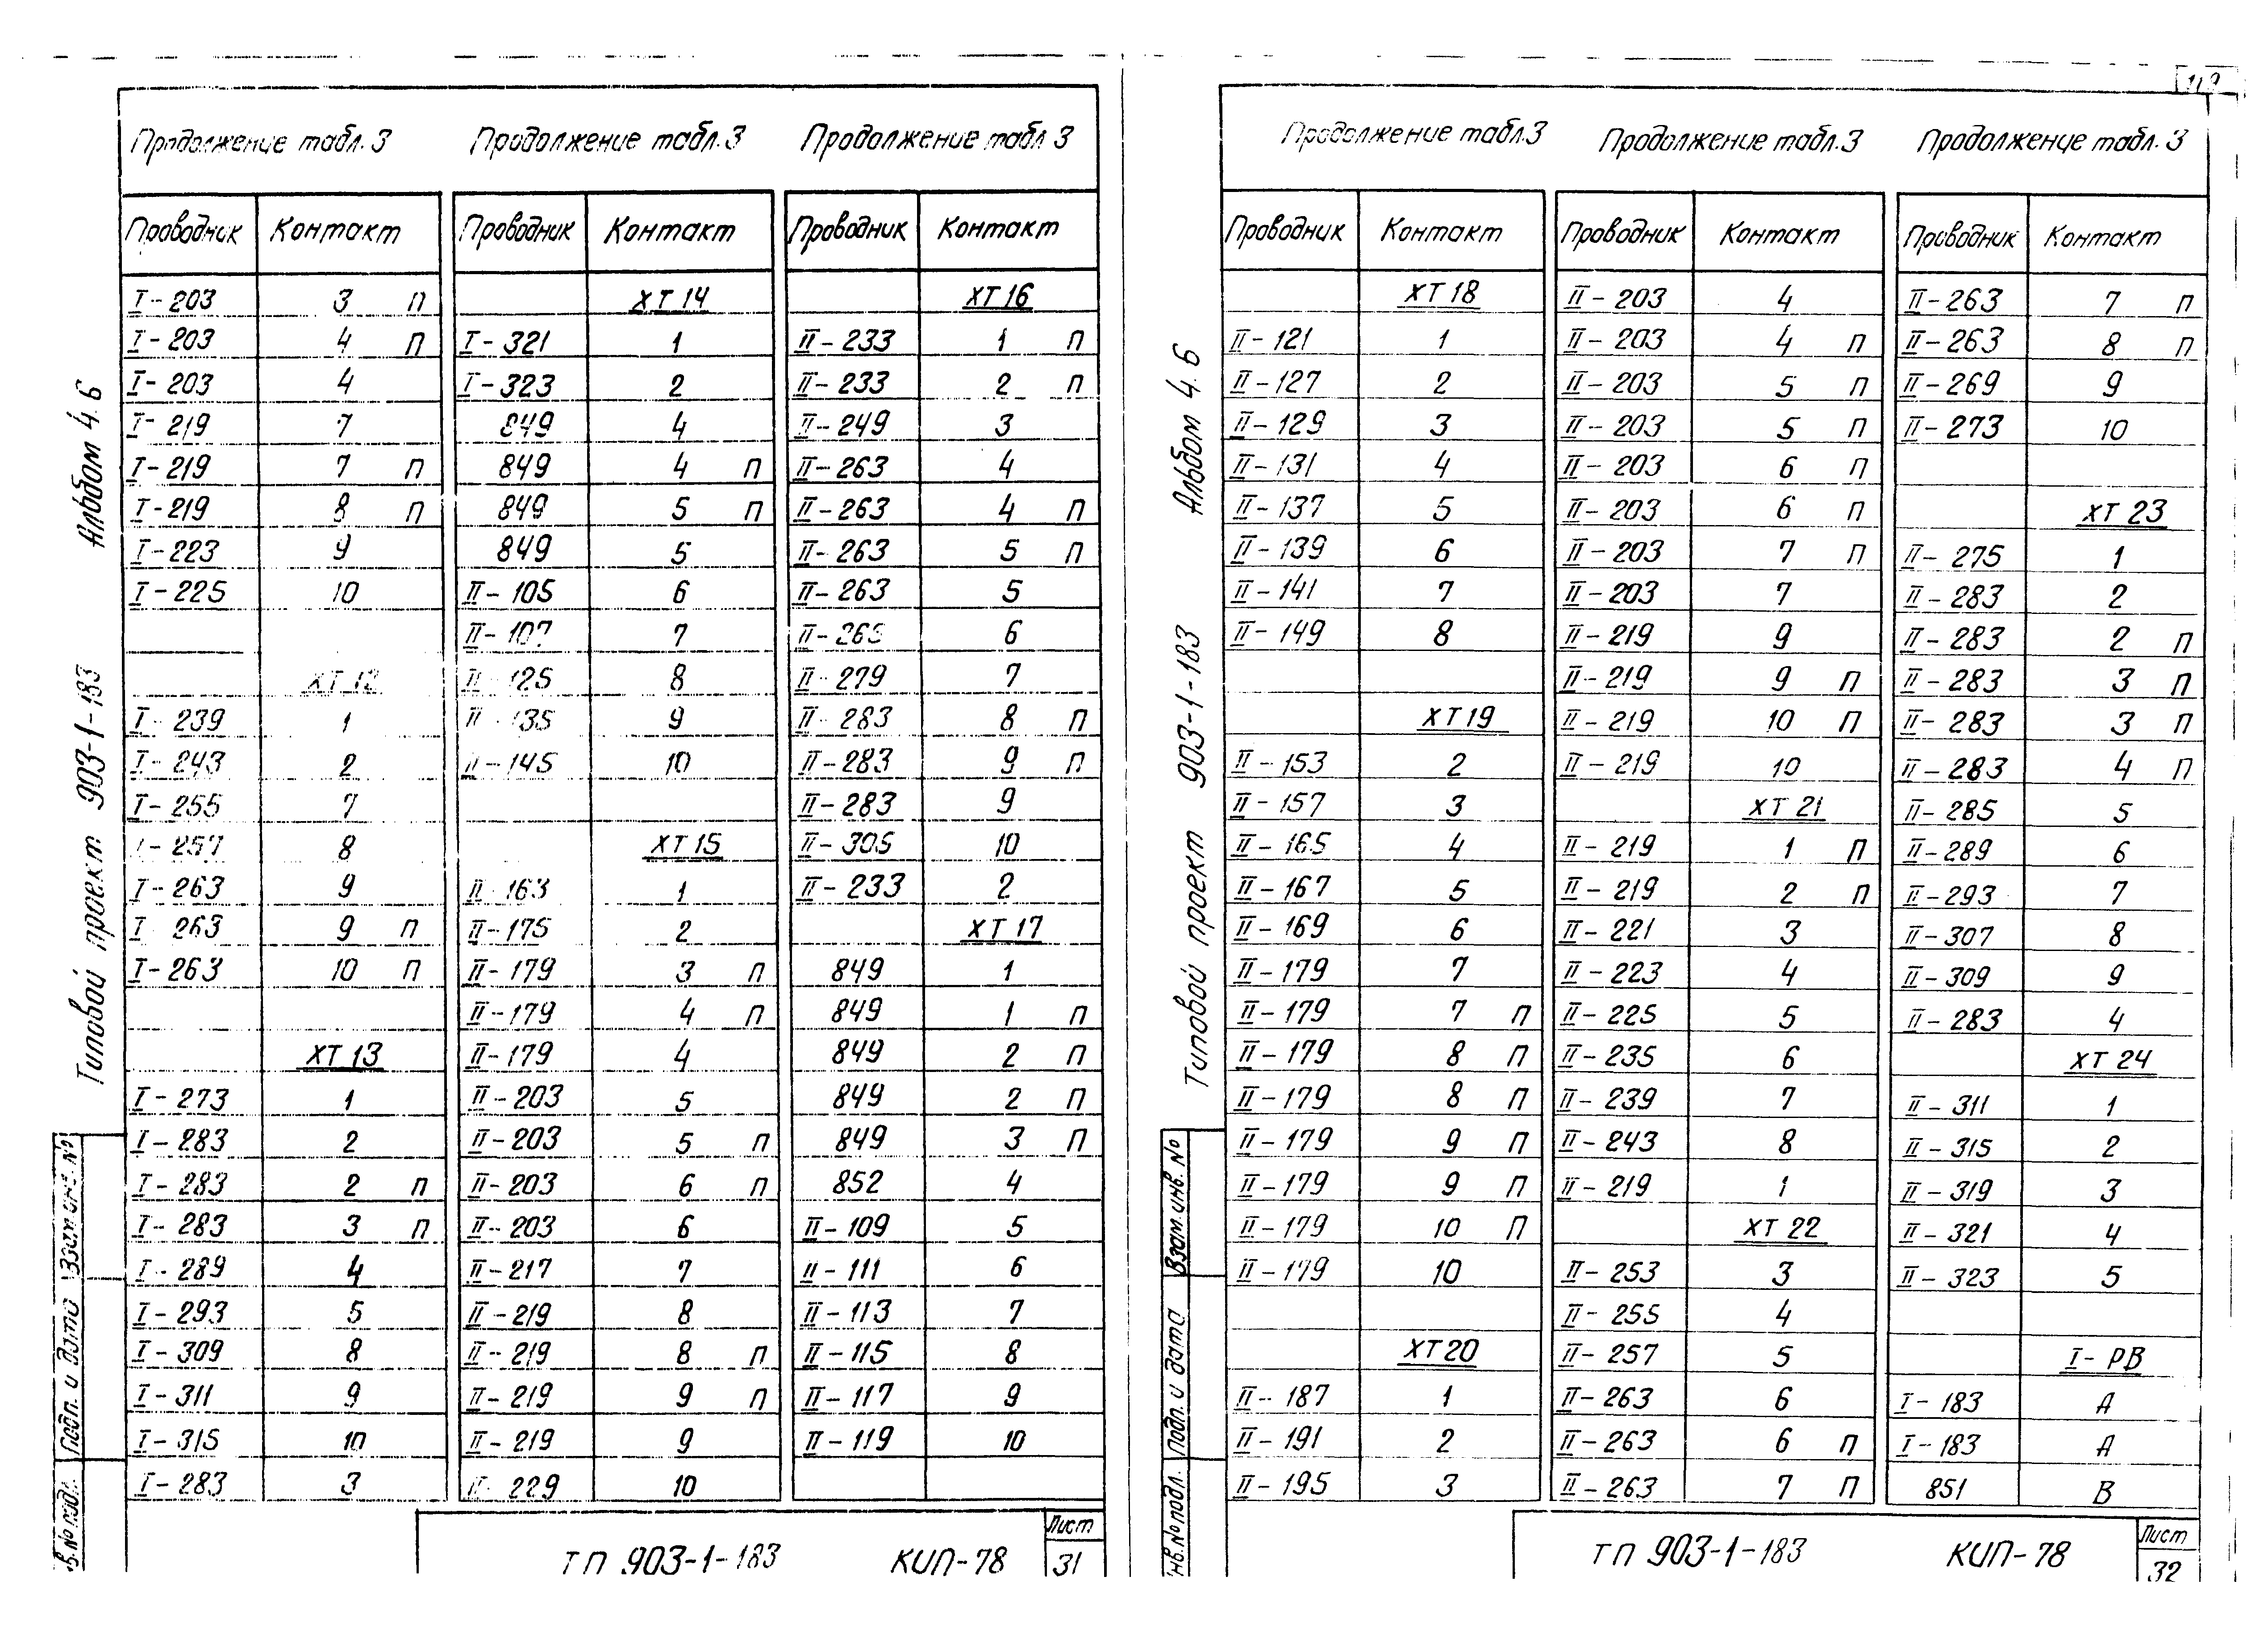 Альбом 4.6
Типовой проект 903-1-183
Продолжение табл.3
Проводник Контакт
I-203 3 П
I-203 4 П
I-203 4
I-219 7
I-219 7 П
I-219 8 П
I-223 9
I-225 10
XT 12
I-239 1
I-243 2
I-255 7
I-257 8
I-263 9
I-263 9 П
I-263 10 П
XT 13
I-273 1
I-283 2
I-283 2 П
I-283 3 П
I-289 4
I-293 5
I-309 8
I-311 9
I-315 10
I-283 3
Продолжение табл.3
Проводник Контакт
XT 14
I-321 1
I-323 2
849 4
849 4 П
849 5 П
849 5
II-105 6
II-107 7
II-125 8
II-135 9
II-145 10
XT 15
II-163 1
II-175 2
II-179 3 П
II-179 4 П
II-179 4
II-203 5
II-203 5 П
II-203 6 П
II-203 6
II-217 7
II-219 8
II-219 8 П
II-219 9 П
II-219 9
II-229 10
Продолжение табл 3
Проводник Контакт
XT 16
II-233 1 П
II-233 2 П
II-249 3
II-263 4
II-263 4 П
II-263 5 П
II-263 5
6
II-279 7
II-283 8 П
II-283 9 П
II-283 9
II-305 10
II-233 2
XT 17
849 1
849 1 П
849 2 П
849 2 П
849 3 П
852 4
II-109 5
II-111 6
II-113 7
II-115 8
II-117 9
II-119 10
Подп. и дата
ТП 903-1-183 КИП-78
Лист
31
Альбом 4.6
Типовой проект 903-1-183
Продолжение табл.3
Проводник Контакт
XT 18
II-121 1
II-127 2
II-129 3
II-131 4
II-137 5
II-139 6
II-141 7
II-149 8
XT 19
II-153 2
II-157 3
II-165 4
II-167 5
II-169 6
II-179 7
II-179 7 П
II-179 8 П
II-179 8 П
II-179 9 П
II-179 9 П
II-179 10 П
II-179 10
XT 20
II-187 1
II-191 2
II-195 3
Продолжение табл.3
Проводник Контакт
II-203 4
II-203 4 П
II-203 5 П
II-203 5 П
II-203 6 П
II-203 6 П
II-203 7 П
II-203 7
II-219 9
II-219 9 П
II-219 10 П
II-219 10
XT 21
II-219 1 П
II-219 2 П
II-221 3
II-223 4
II-225 5
II-235 6
II-239 7
II-243 8
II-219 1
XT 22
II-253 3
II-255 4
II-257 5
II-263 6
II-263 6 П
II-263 7 П
Продолжение табл.3
Проводник Контакт
II-263 7 П
II-263 8 П
II-269 9
II-273 10
XT 23
II-275 1
II-283 2
II-283 2 П
II-283 3 П
II-283 3 П
II-283 4 П
II-285 5
II-289 6
II-293 7
II-307 8
II-309 9
II-283 4
XT 24
II-311 1
II-315 2
II-319 3
II-321 4
II-323 5
I-РВ
I-183 А
I-183 А
851 В
Взам.инв.№
Подп. и дата
Инв.№подл.
ТП 903-1-183 КИП-78
Лист
32